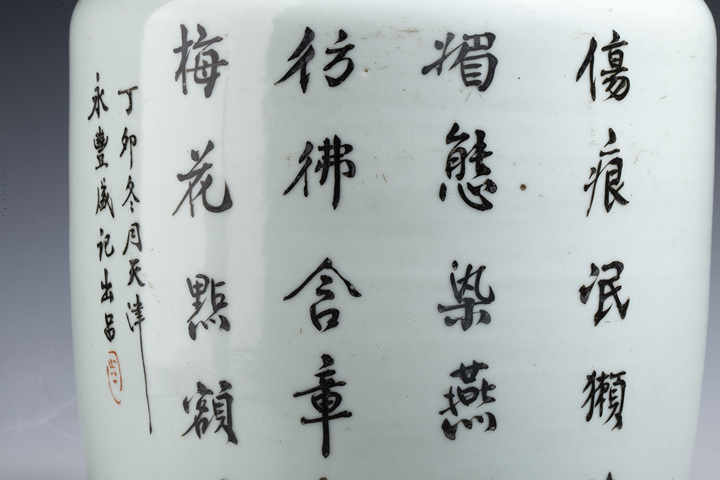 傷痕泯獺
獨態染燕
彷彿含章
梅花點額
丁卯冬月天津
永豐盛記出品